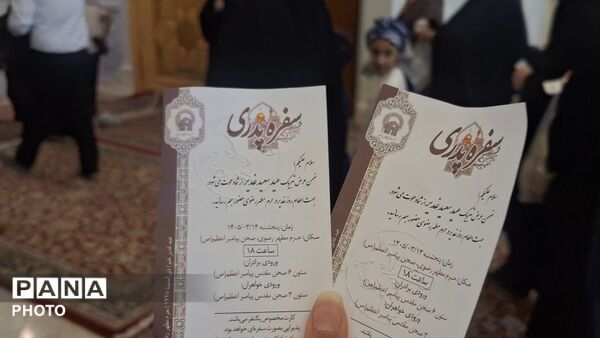 سفره پدری
سلام علیکم؛
ضمن عرض تبریک عید سعید غدیر از شما دعوت می شود،
جهت اطعام روز غدیر در حرم مطهر رضوی حضور بهم رسانید.
زمان: پنجشنبه ۱۴۰۵/۰۳/۱۴
مکان: حرم مطهر رضوی، صحن پیامبر اعظم(ص)
ساعت ۱۸
ورودی برادران:
ستون ۶ صحن مقدس پیامبر اعظم(ص)
ورودی خواهران:
ستون ۳ صحن مقدس پیامبر اعظم(ص)
کارت مخصوص یکنفر می‌باشد.
پذیرایی بصورت سفره‌ای خواهد بود.
سفره پدری
سلام علیکم؛
ضمن عرض تبریک عید سعید غدیر از شما دعوت می شود،
جهت اطعام روز غدیر در حرم مطهر رضوی حضور بهم رسانید.
زمان: پنجشنبه ۱۴۰۵/۰۳/۱۴
مکان: حرم مطهر رضوی، صحن پیامبر اعظم(ص)
ساعت ۱۸
ورودی برادران:
ستون ۶ صحن مقدس پیامبر اعظم(ص)
ورودی خواهران:
صحن مقدس پیامبر اعظم(ص)
PANA
PHOTO